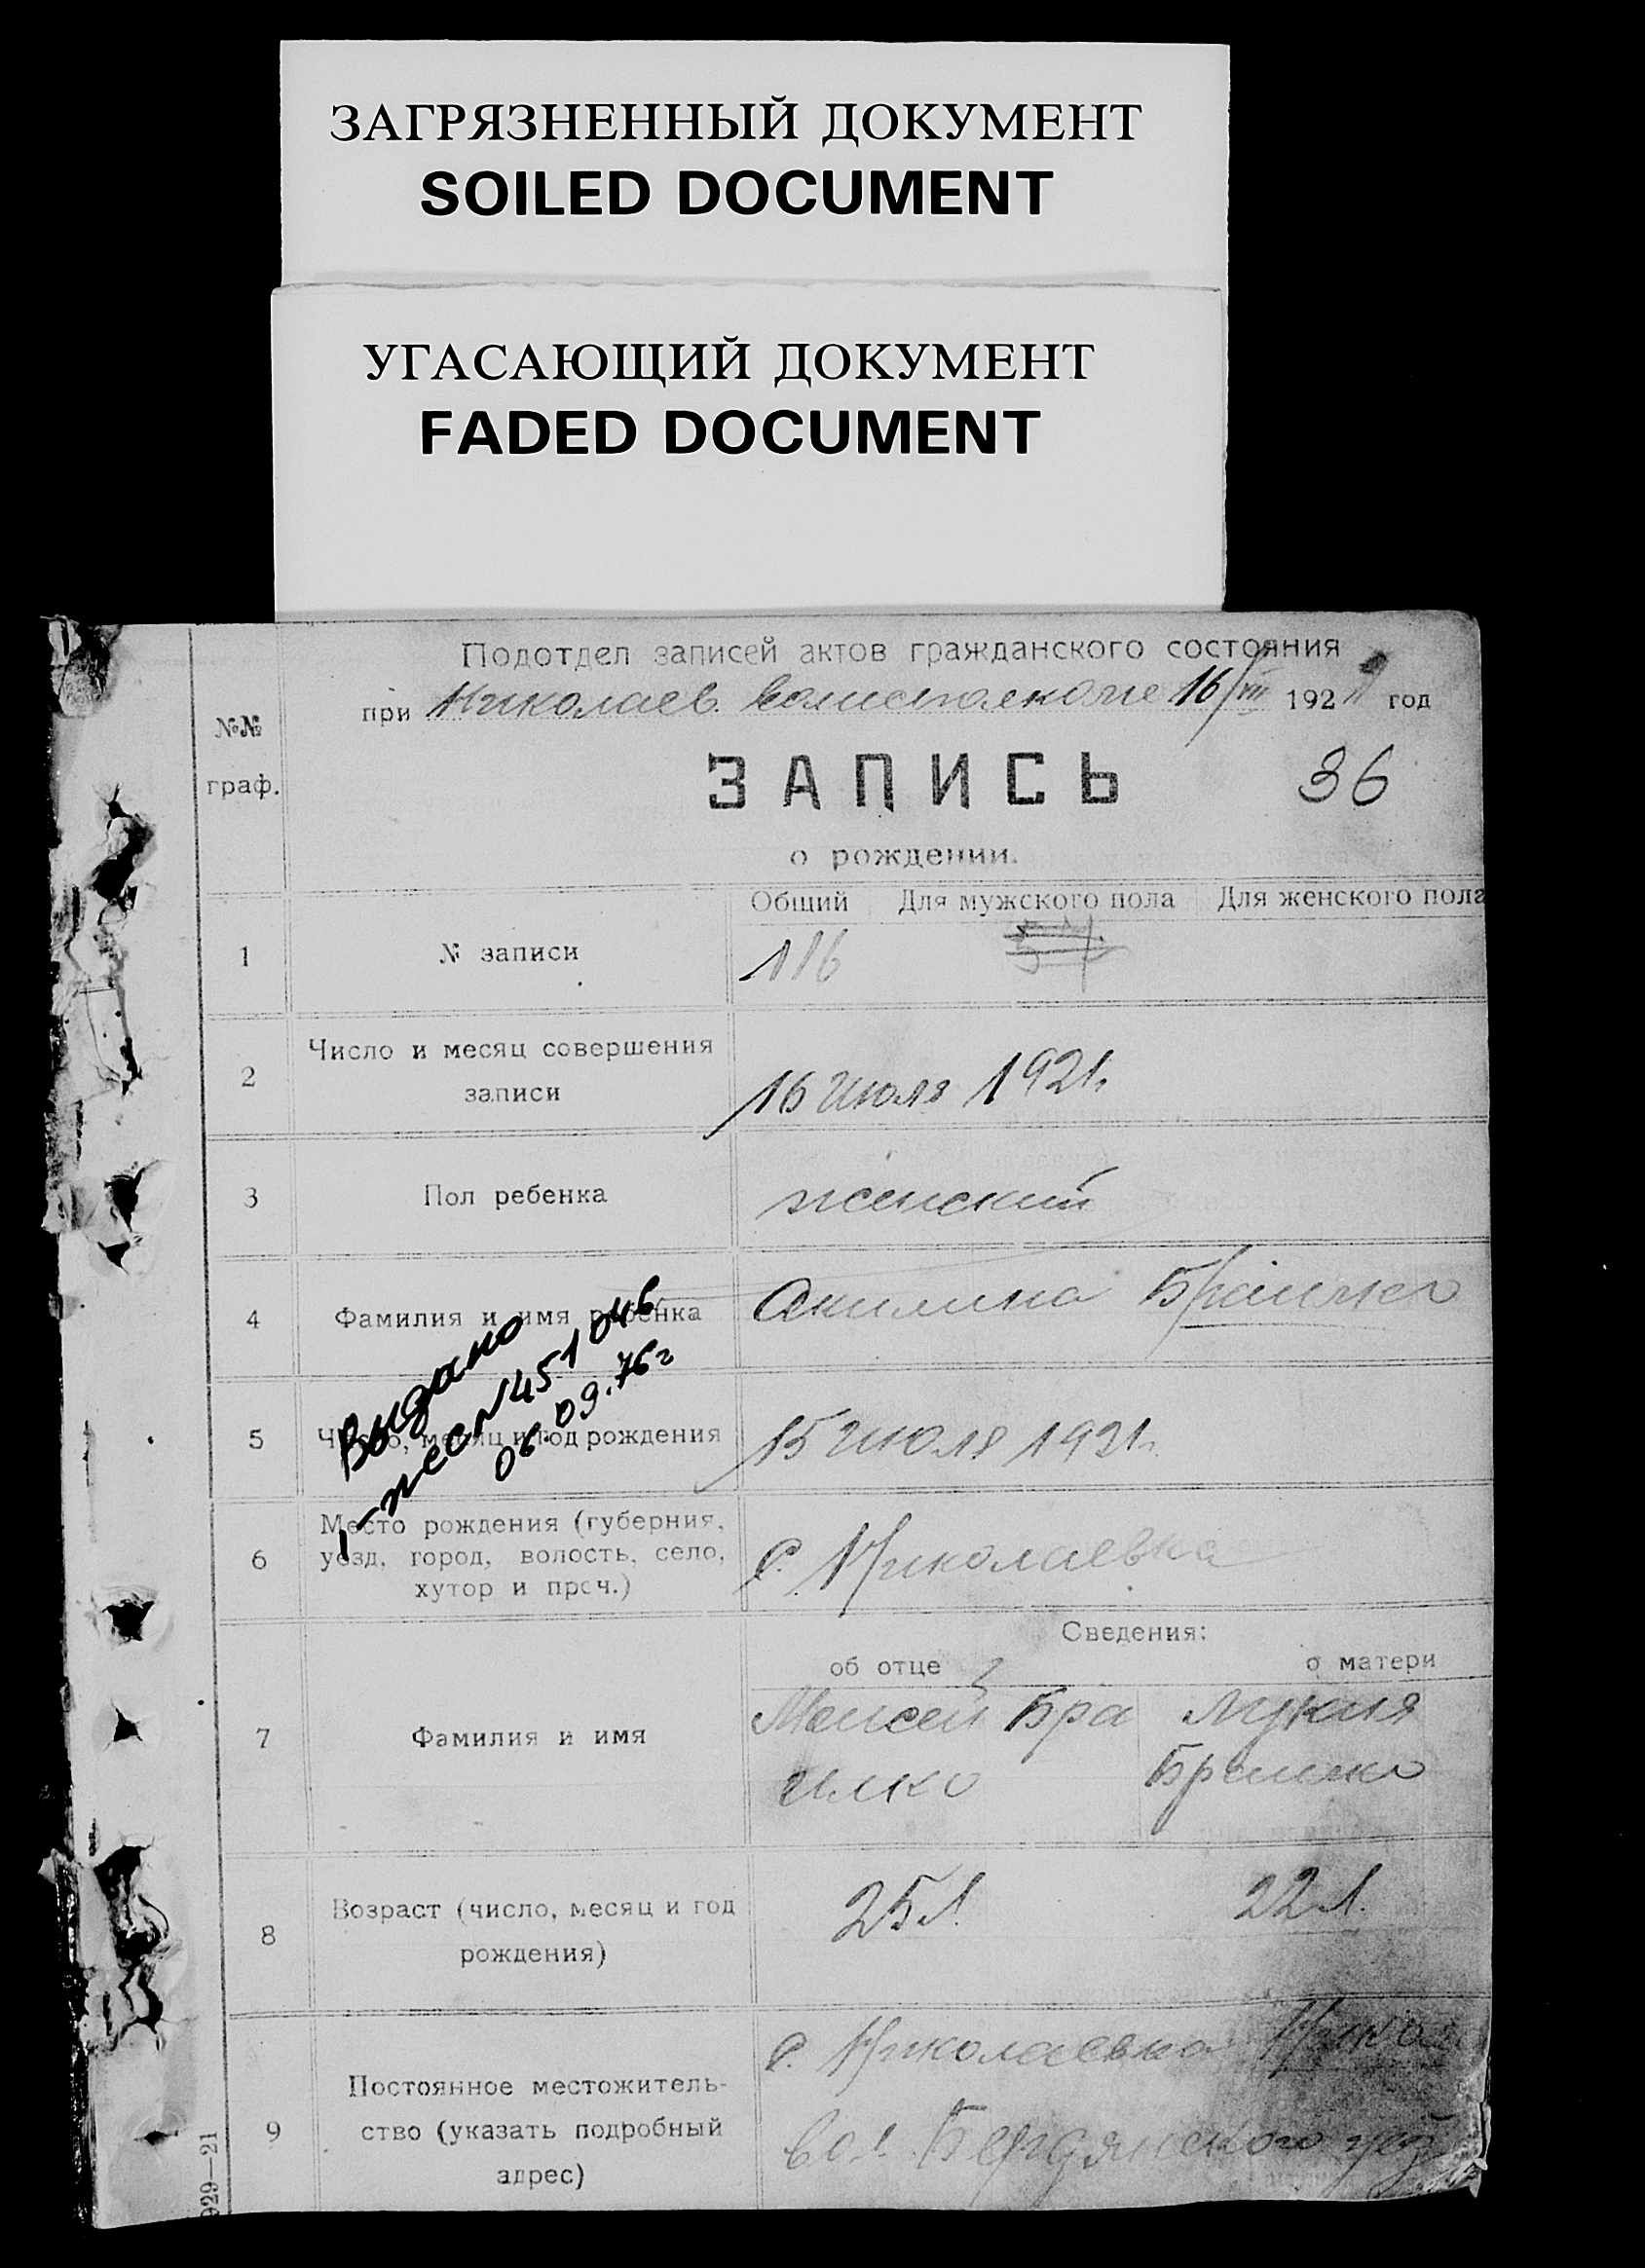 ЗАГРЯЗНЕННЫЙ ДОКУМЕНТ
SOILED DOCUMENT
УГАСАЮЩИЙ ДОКУМЕНТ
FADED DOCUMENT
Подотдел записей актов гражданского состояния
при Николаев. 16/VII 1921 год
№№
граф.
ЗАПИСЬ
36
о рождении.
Общий Для мужского пола Для женского пола
1 № записи 116
2 Число и месяц совершения
записи
16 июля 1921г.
3 Пол ребенка женский
4 Фамилия и имя ребенка Акилина
Выдано
06.09.76г
5 Число, месяц и год рождения 15 июля 1921г.
6 Место рождения (губерния,
уезд, город, волость, село,
хутор и проч.)
с. Николаевка
Сведения:
об отце о матери
7 Фамилия и имя
Моисей Бра
илко
8 Возраст (число, месяц и год
рождения)
25 л. 22 л.
9 Постоянное местожитель-
ство (указать подробный
адрес)
с. Николаевка Никол
вол. Бердянского уез
929—21